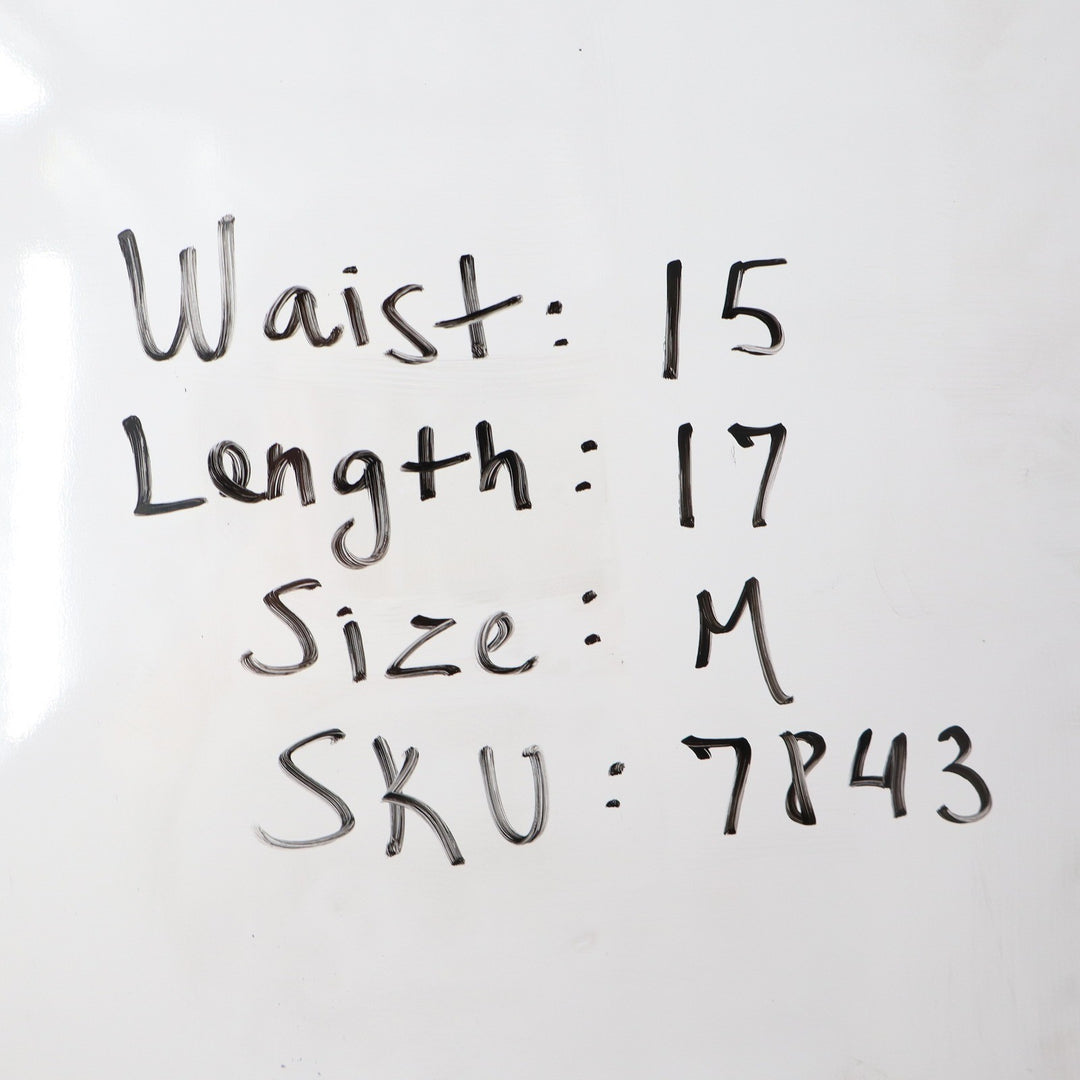 Waist: 15
Length: 17
Size: M
SKU: 7843